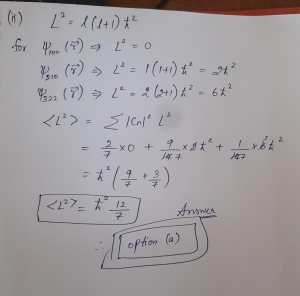 (11) L² = l(l+1)ħ²
for ψ₁₀₀(r⃗) ⇒ L² = 0
ψ₂₁₀(r⃗) ⇒ L² = 1(1+1)ħ² = 2ħ²
ψ₃₂₂(r⃗) ⇒ L² = 2(2+1)ħ² = 6ħ²
<L²> = Σ |Cn|² L²
= 2/7 × 0 + 9/14 × 2ħ² + 1/14 × 6ħ²
= ħ² (9/7 + 3/7)
<L²> = ħ² 12/7
Answer
∴ option (a)